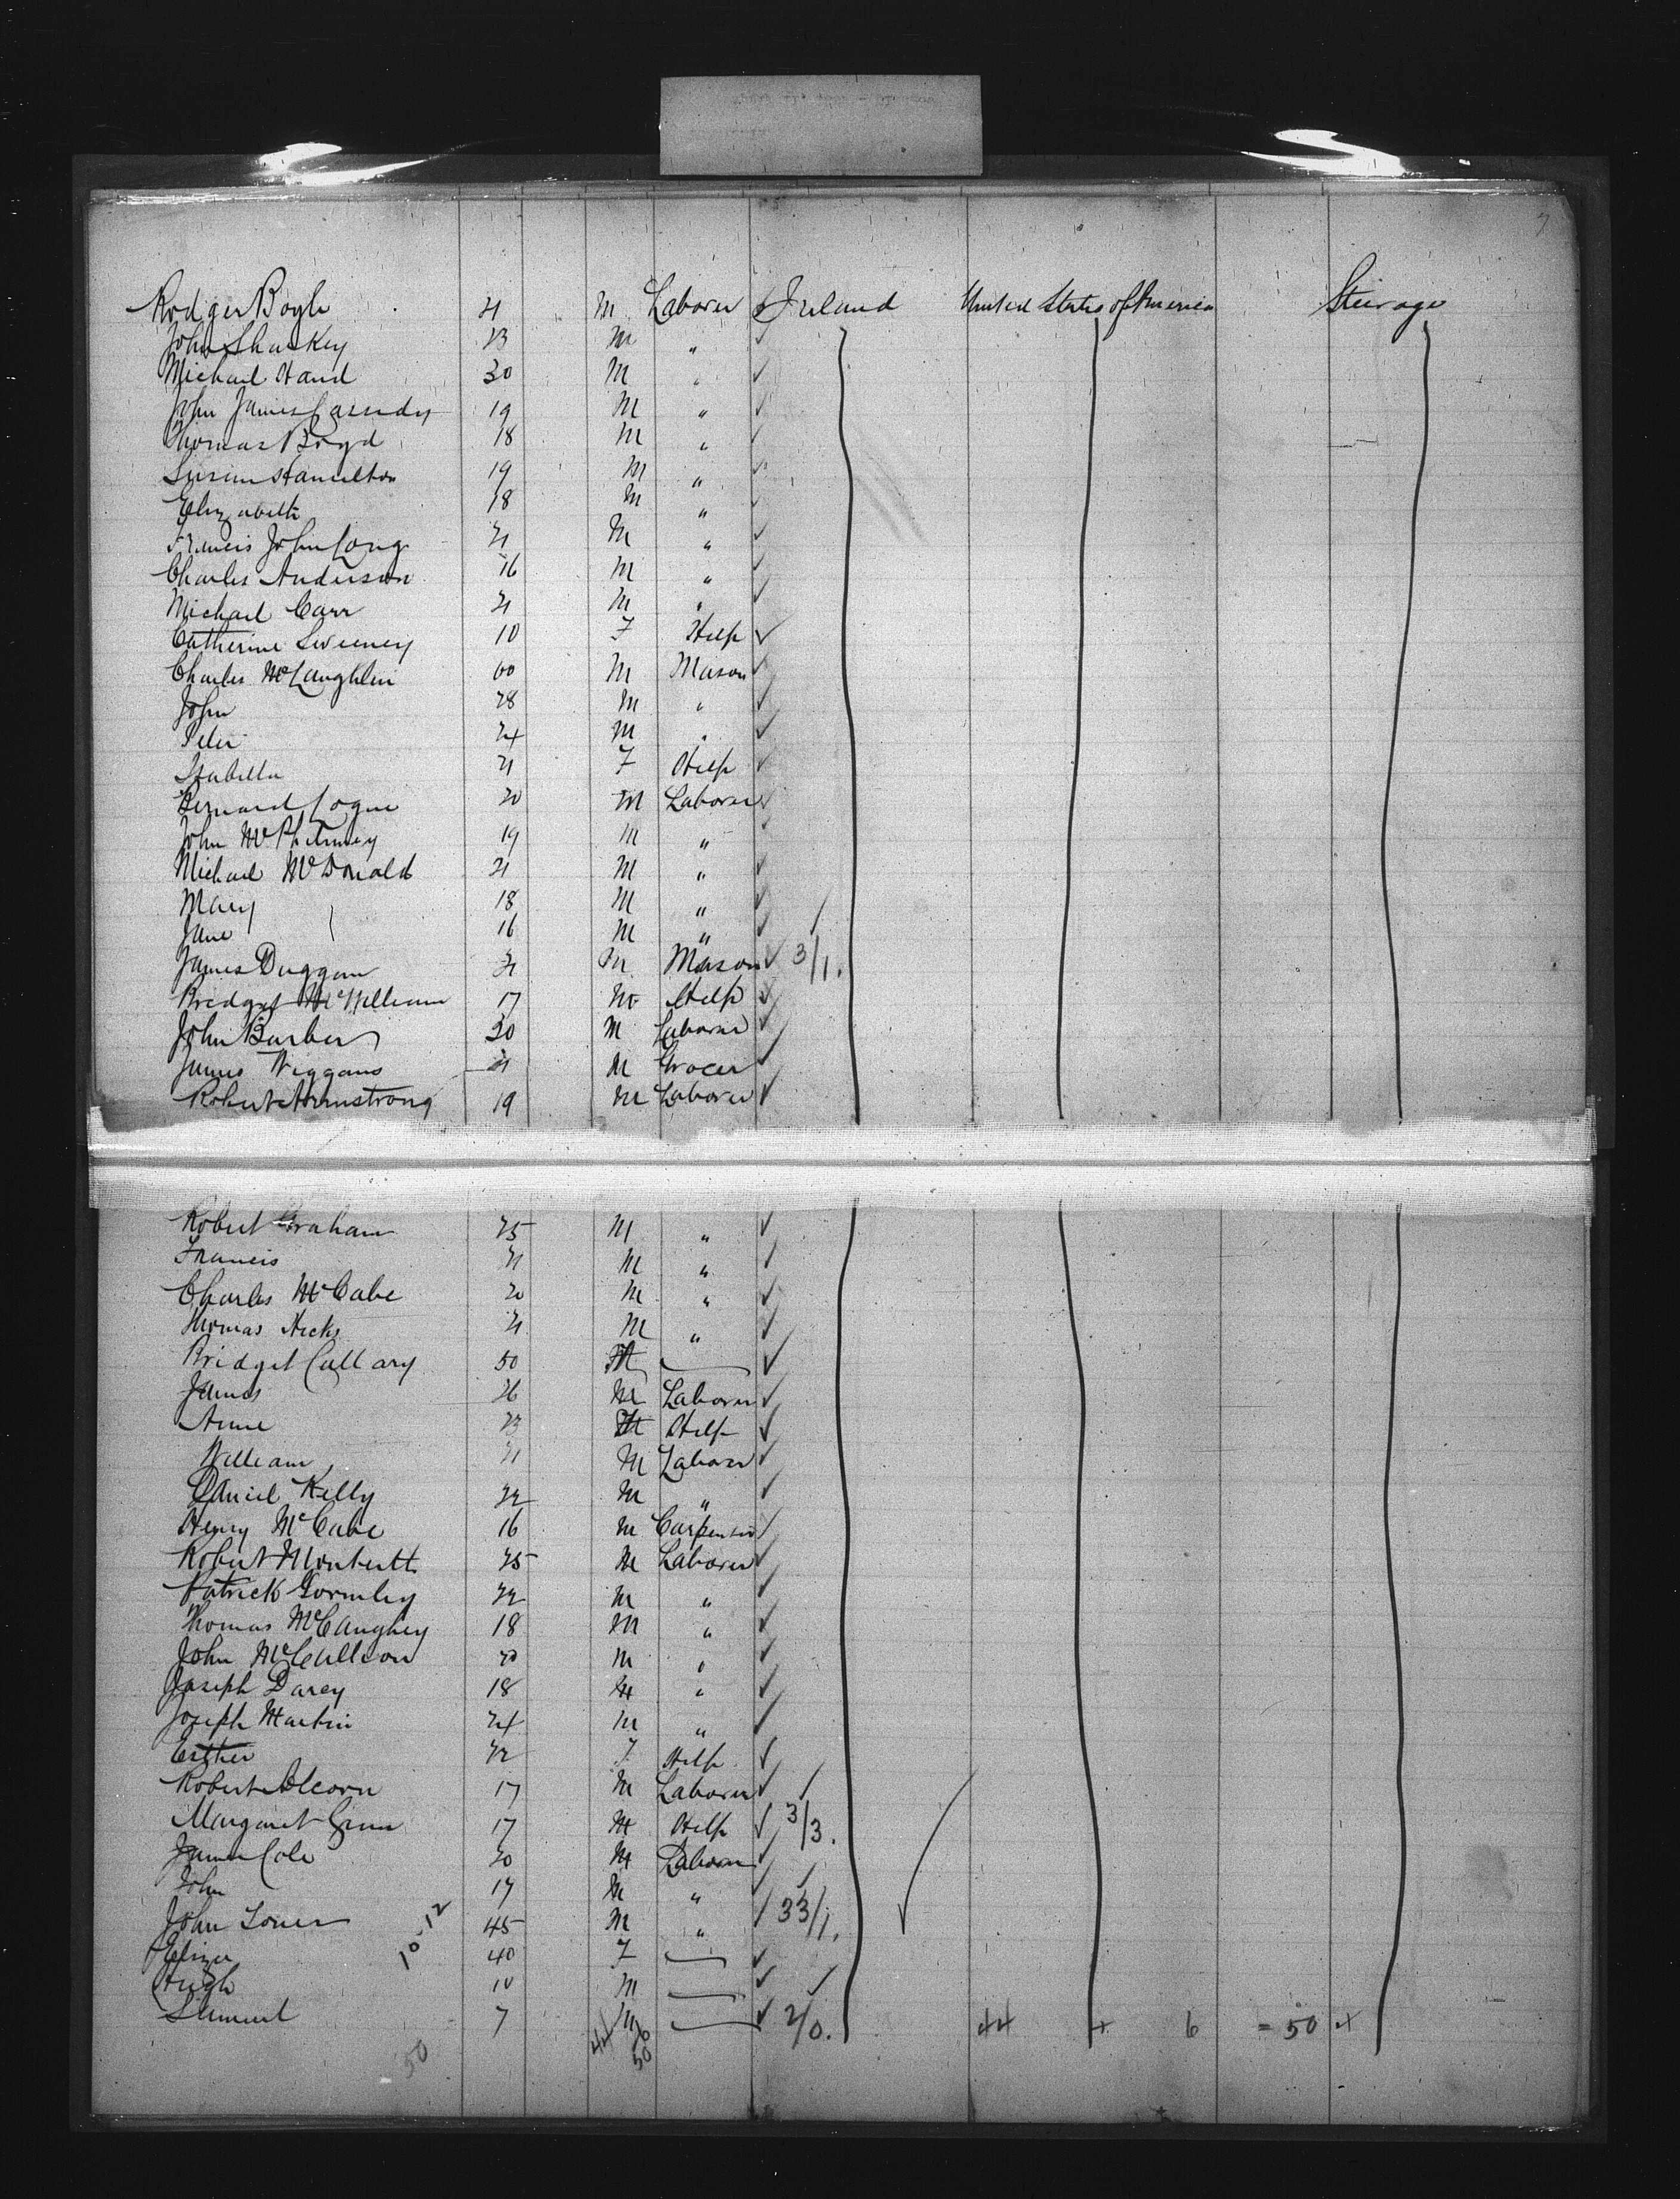 7
Rodger Boyle 21 M Laborer ✓ Ireland United States of America Steerage
John Sharkey 23 M " ✓
Michael Hand 30 M " ✓
John James Cassidy 19 M " ✓
Thomas Boyd 18 M " ✓
Hamilton 19 M " ✓
Elizabeth 18 M " ✓
Francis John Long 21 M " ✓
Charles Anderson 16 M " ✓
Michael Carr 21 M " ✓
Catherine Sweeney 10 F Help ✓
Charles McLaughlin 60 M Mason ✓
John 28 M " ✓
Peter 24 M " ✓
Isabella 21 F Help ✓
Bernard Logue 20 M Laborer ✓
John 19 M " ✓
Michael McDonald 21 M " ✓
Mary 18 M " ✓
Jane 16 M " ✓
James Duggan 21 M Mason ✓ 3/1.
Bridget McWilliam 17 M Help ✓
John Barber 30 M Laborer ✓
James Wiggans 21 M Grocer ✓
Robert Armstrong 19 M Laborer ✓
Robert Graham 25 M " ✓
Francis 21 M " ✓
Charles McCabe 20 M " ✓
Thomas Hicks 21 M " ✓
Bridget Callary 50 — ✓
James 26 M Laborer ✓
Anne 23 Help ✓
William 21 M Laborer ✓
Daniel Kelly 22 M " ✓
Henry McCabe 16 M Carpenter ✓
Robert 25 M Laborer ✓
Patrick Gormley 22 M " ✓
Thomas McCaughey 18 M " ✓
John 20 M " ✓
Joseph Darcy 18 M " ✓
Joseph Martin 24 M " ✓
Esther 22 F Help ✓
Robert Alcorn 17 M Laborer ✓
Margaret 17 M Help ✓ 3/3.
James Cole 20 M Laborer ✓
John 17 M " ✓
John 45 M " ✓ 33/1.
10-12
Eliza 40 F — ✓
Hugh 10 M — ✓
Samuel 7 M — ✓ 2/0. 44 + 6 = 50
50 44 6 50